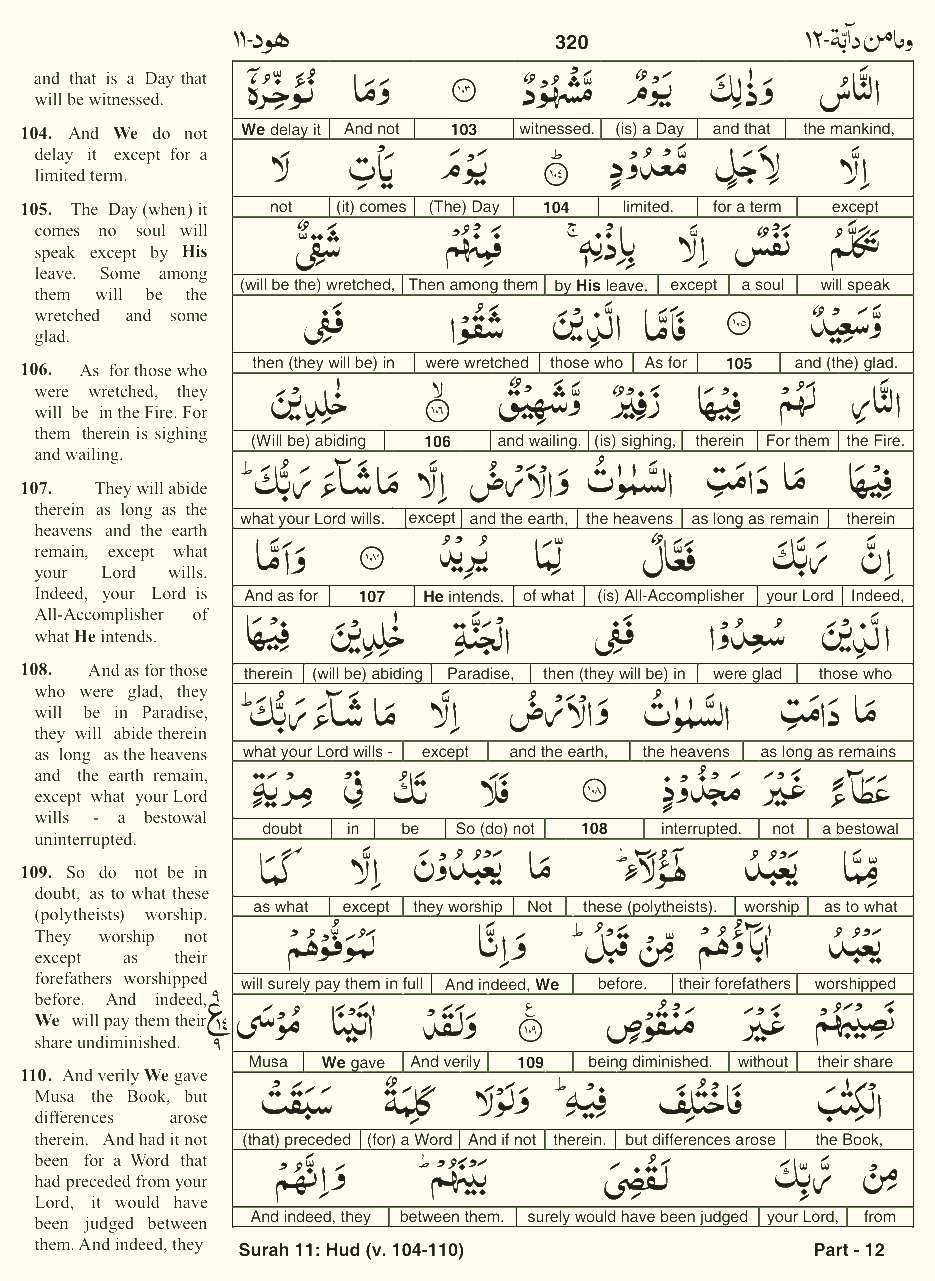 وما من دآبّة-١٢
320
هود-١١
and that is a Day that
will be witnessed.
104. And We do not
delay it except for a
limited term.
105. The Day (when) it
comes no soul will
speak except by His
leave. Some among
them will be the
wretched and some
glad.
106. As for those who
were wretched, they
will be in the Fire. For
them therein is sighing
and wailing.
107. They will abide
therein as long as the
heavens and the earth
remain, except what
your Lord wills.
Indeed, your Lord is
All-Accomplisher of
what He intends.
108. And as for those
who were glad, they
will be in Paradise,
they will abide therein
as long as the heavens
and the earth remain,
except what your Lord
wills - a bestowal
uninterrupted.
109. So do not be in
doubt, as to what these
(polytheists) worship.
They worship not
except as their
forefathers worshipped
before. And indeed,
We will pay them their
share undiminished.
110. And verily We gave
Musa the Book, but
differences arose
therein. And had it not
been for a Word that
had preceded from your
Lord, it would have
been judged between
them. And indeed, they
النَّاسُ وَذٰلِكَ يَوْمٌ مَّشْهُوْدٌ ١٠٣ وَمَا نُؤَخِّرُهٗٓ
the mankind, and that (is) a Day witnessed. 103 And not We delay it
اِلَّا لِاَجَلٍ مَّعْدُوْدٍ ١٠٤ؕ يَوْمَ يَاْتِ لَا
except for a term limited. 104 (The) Day (it) comes not
تَكَلَّمُ نَفْسٌ اِلَّا بِاِذْنِهٖۚ فَمِنْهُمْ شَقِيٌّ
will speak a soul except by His leave. Then among them (will be the) wretched,
وَّسَعِيْدٌ ١٠٥ فَاَمَّا الَّذِيْنَ شَقُوْا فَفِى
and (the) glad. 105 As for those who were wretched then (they will be) in
النَّارِ لَهُمْ فِيْهَا زَفِيْرٌ وَّشَهِيْقٌ ١٠٦ۙ خٰلِدِيْنَ
the Fire. For them therein (is) sighing, and wailing. 106 (Will be) abiding
فِيْهَا مَا دَامَتِ السَّمٰوٰتُ وَالْاَرْضُ اِلَّا مَا شَآءَ رَبُّكَؕ
therein as long as remain the heavens and the earth, except what your Lord wills.
اِنَّ رَبَّكَ فَعَّالٌ لِّمَا يُرِيْدُ ١٠٧ وَاَمَّا
Indeed, your Lord (is) All-Accomplisher of what He intends. 107 And as for
الَّذِيْنَ سُعِدُوْا فَفِى الْجَنَّةِ خٰلِدِيْنَ فِيْهَا
those who were glad then (they will be) in Paradise, (will be) abiding therein
مَا دَامَتِ السَّمٰوٰتُ وَالْاَرْضُ اِلَّا مَا شَآءَ رَبُّكَؕ
as long as remains the heavens and the earth, except what your Lord wills -
عَطَآءً غَيْرَ مَجْذُوْذٍ ١٠٨ فَلَا تَكُ فِيْ مِرْيَةٍ
a bestowal not interrupted. 108 So (do) not be in doubt
مِّمَّا يَعْبُدُ هٰٓؤُلَآءِؕ مَا يَعْبُدُوْنَ اِلَّا كَمَا
as to what worship these (polytheists). Not they worship except as what
يَعْبُدُ اٰبَآؤُهُمْ مِّنْ قَبْلُؕ وَاِنَّا لَمُوَفُّوْهُمْ
worshipped their forefathers before. And indeed, We will surely pay them in full
نَصِيْبَهُمْ غَيْرَ مَنْقُوْصٍ ١٠٩ۧ وَلَقَدْ اٰتَيْنَا مُوْسَى
٩ ع ١٤ ٩
their share without being diminished. 109 And verily We gave Musa
الْكِتٰبَ فَاخْتُلِفَ فِيْهِؕ وَلَوْلَا كَلِمَةٌ سَبَقَتْ
the Book, but differences arose therein. And if not (for) a Word (that) preceded
مِنْ رَّبِّكَ لَقُضِيَ بَيْنَهُمْؕ وَاِنَّهُمْ
from your Lord, surely would have been judged between them. And indeed, they
Surah 11: Hud (v. 104-110)
Part - 12